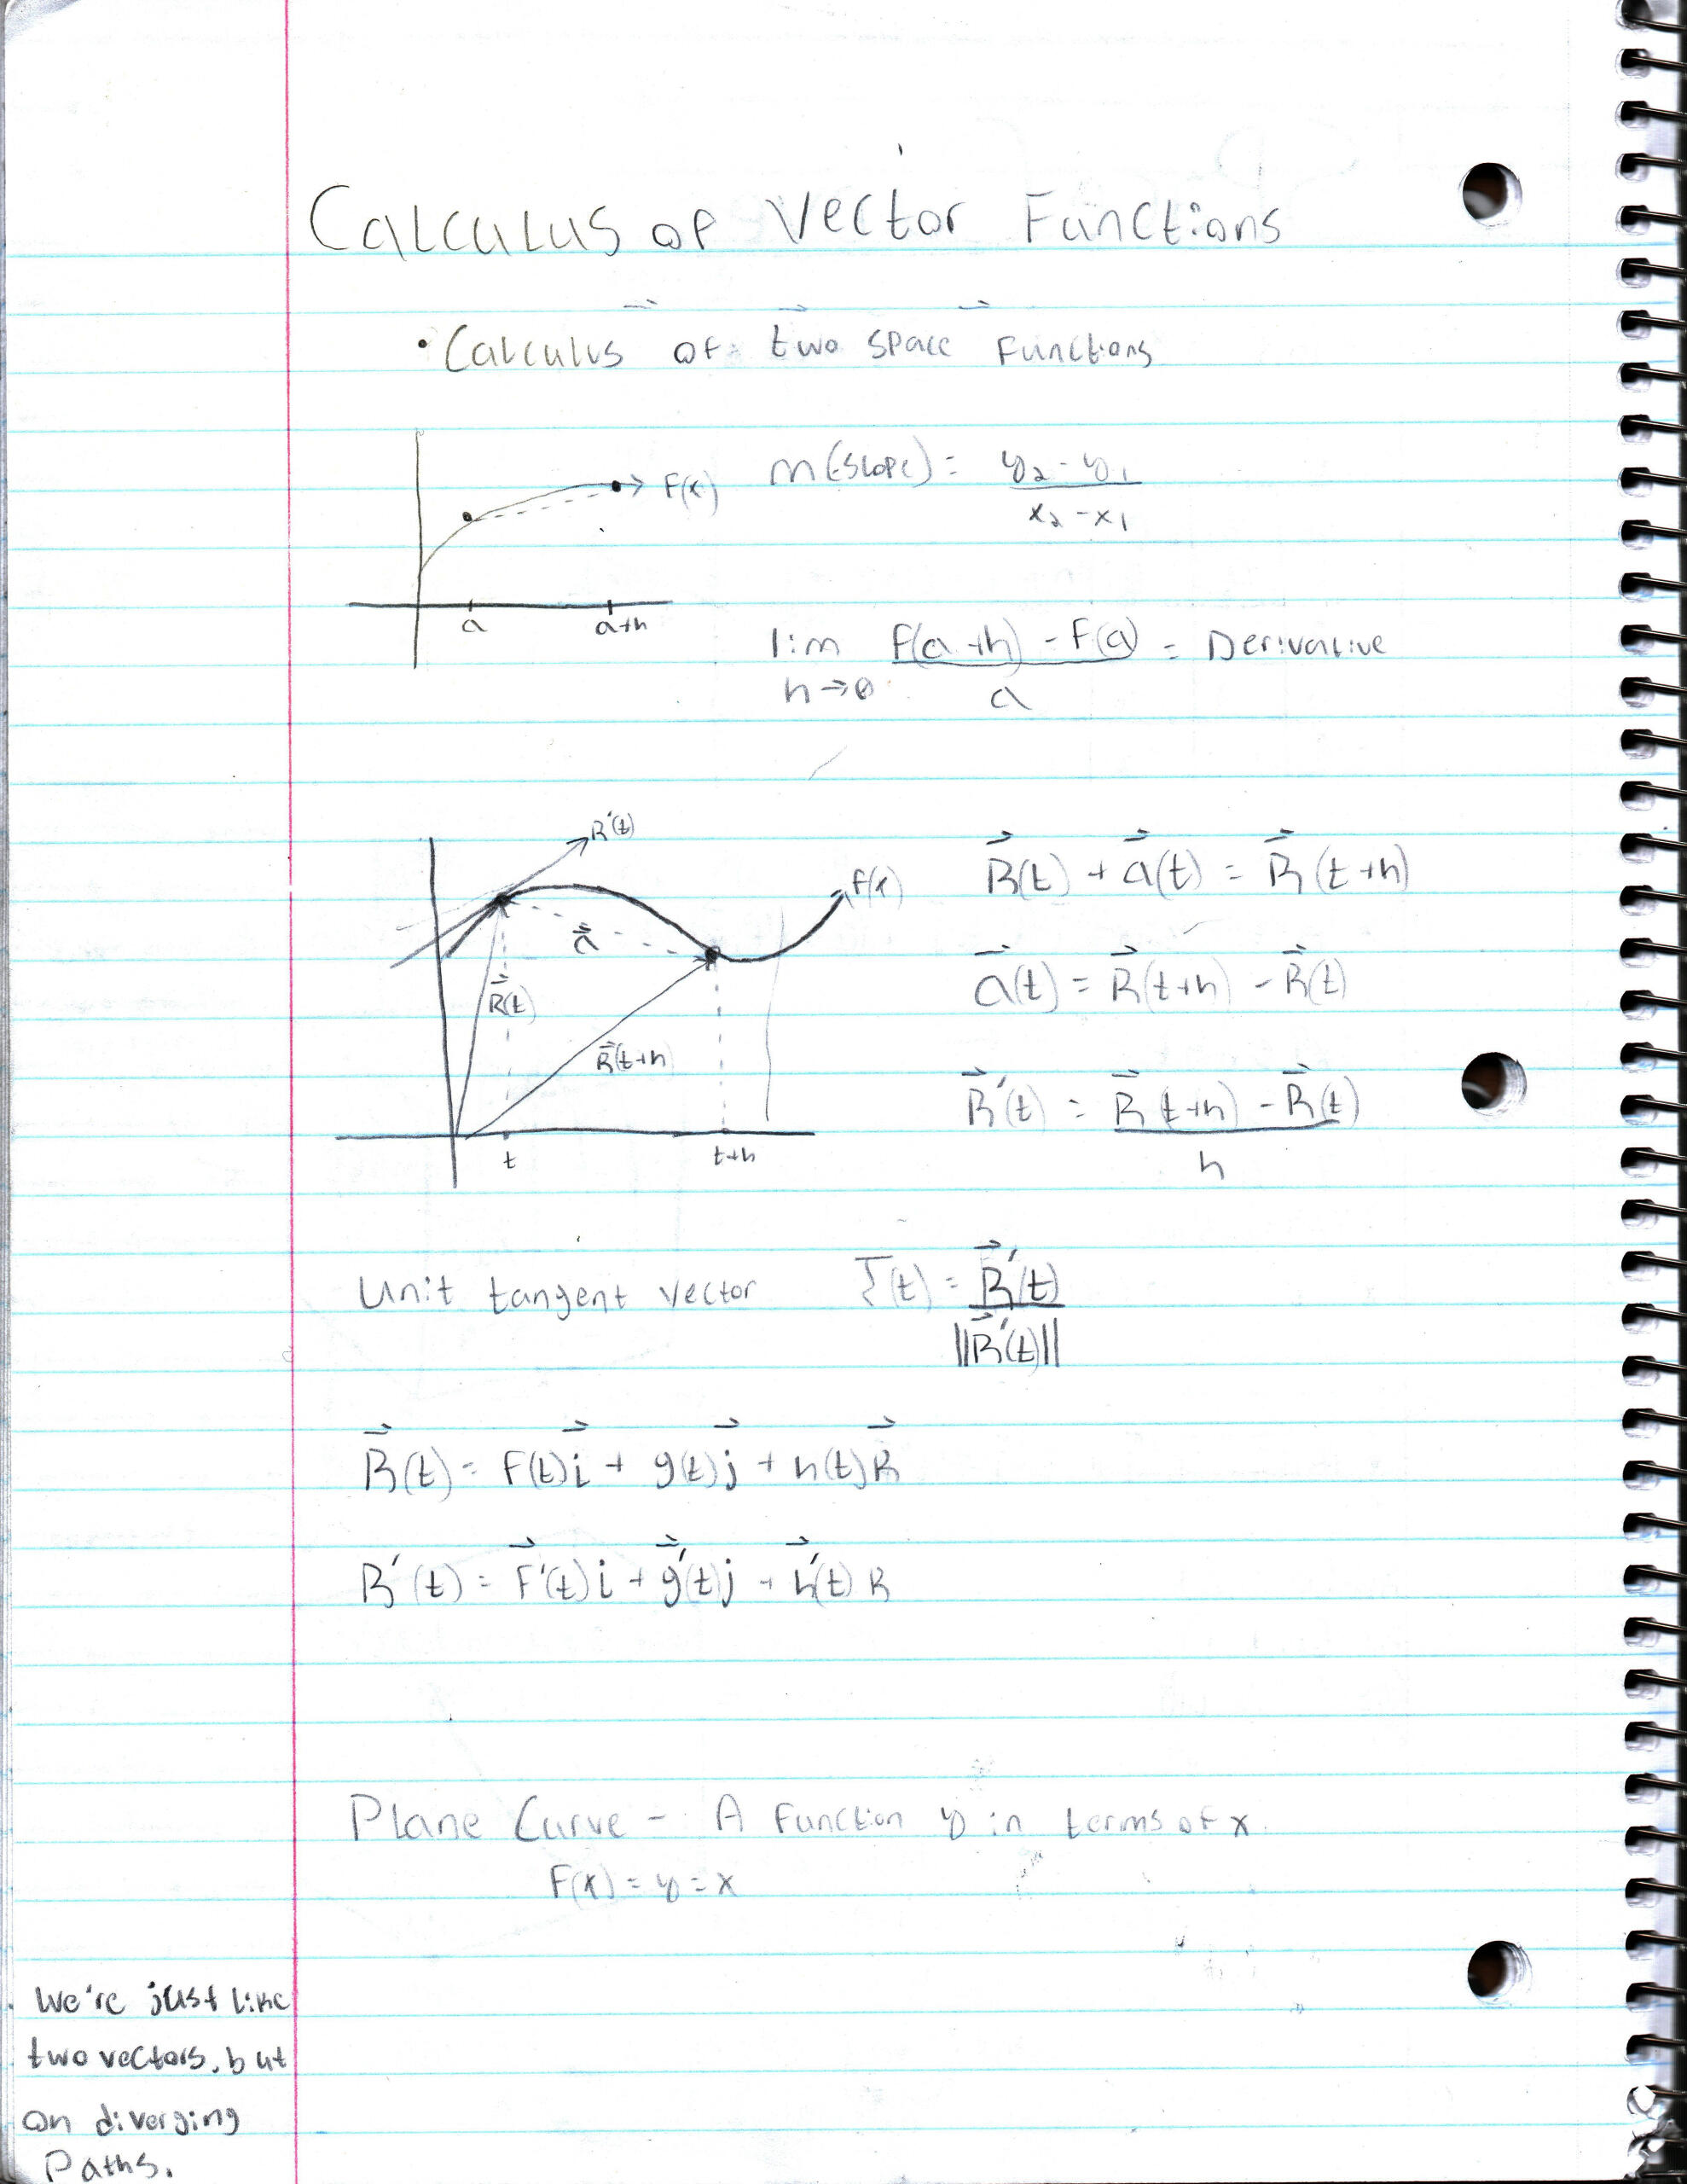 Calculus of Vector Functions
• Calculus of two space Functions
F(x)
a a+h
m(slope) = y₂ - y₁ / x₂ - x₁
lim h→0 F(a+h) - F(a) / a = Derivative
R'(t)
f(x)
a⃗
R⃗(t)
R⃗(t+h)
t t+h
R⃗(t) + a⃗(t) = R⃗(t+h)
a⃗(t) = R⃗(t+h) - R⃗(t)
R⃗'(t) = R⃗(t+h) - R⃗(t) / h
Unit tangent vector T⃗(t) = R⃗'(t) / ||R⃗'(t)||
R⃗(t) = F(t)i⃗ + g(t)j⃗ + h(t)k⃗
R'(t) = F⃗'(t)i + g⃗'(t)j + h⃗'(t)k
Plane Curve - A Function y in terms of x
F(x) = y = x
We're just like
two vectors, but
on diverging
Paths.